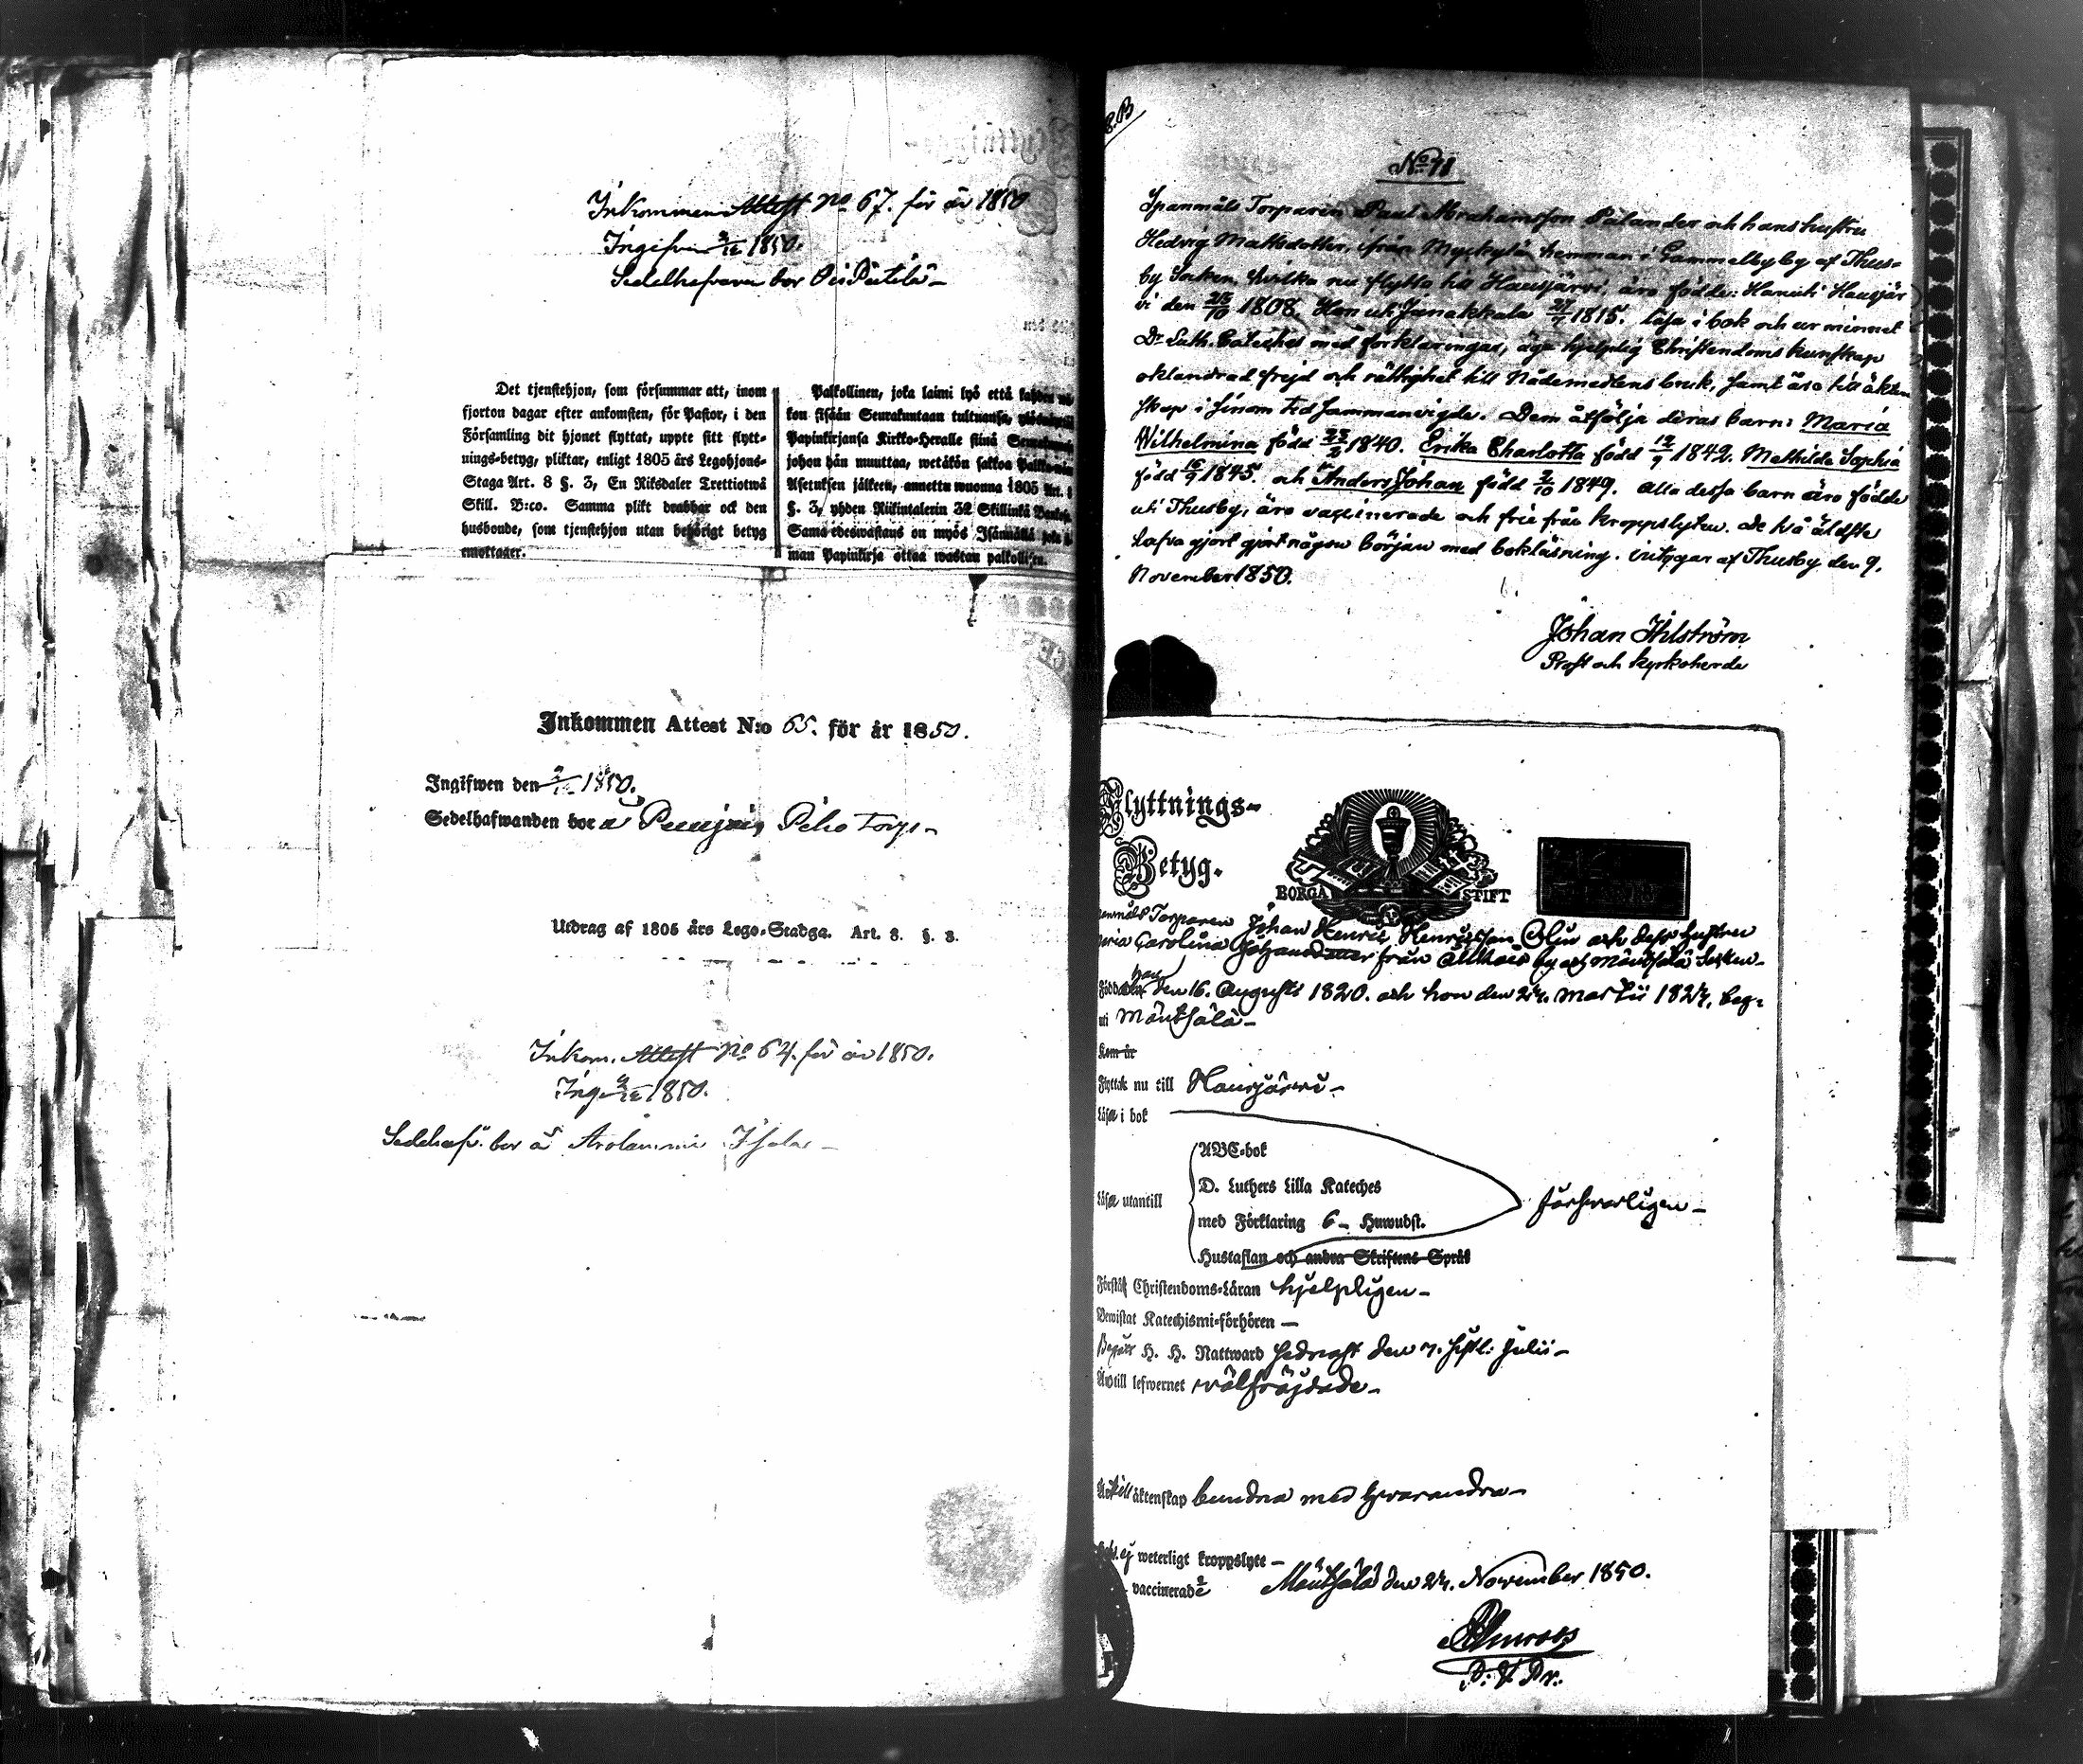 Inkommen Attest No 67. för år 1850
Ingifven 9/12 1850.
Sedelhafvaren bor
Det tjenstehjon, som försummar att, inom
fjorton dagar efter ankomsten, för Pastor, i den
Församling dit hjonet flyttat, uppte sitt flytt-
nings-betyg, pliktar, enligt 1805 års Legohjons-
Staga Art. 8 §. 3, En Riksdaler Trettiotwå
Skill. B:co. Samma plikt drabbar ock den
husbonde, som tjenstehjon utan behörigt betyg
emottager.
Palkollinen, joka laimi lyö että
kon sisään Seurakuntaan tultuansa,
Papinkirjansa Kirkko-Heralle siinä
johon hän muuttaa, wetäkön sakkoa
Asetuksen jälkeen, annettu wuonna 1805 Art.
§. 3, yhden Riikintalerin 32 Skillinkiä
Sama edeswastaus on myös Isännällä
man Papinkirja ottaa wastan palkollisen.
Inkommen Attest N:o 65. för år 1850.
Ingifwen den 9/12 1850.
Sedelhafwanden bor å Torp
Utdrag af 1805 års Lego-Stadga. Art. 8. §. 3.
Inkom. Attest No 64. för år 1850.
Ing. 9/12 1850.
Sedelhafv. bor å Arolammi
8.B
No 71
Spanmåls Torparen Paul Abrahamsson Palander och hans hustru
Hedvig Mattsdotter, ifrån Myckylä hemman i Gammelby by af Thus-
by Socken, hvilka nu flytta till Hausjärvi, äro födde: Han uti Hausjär
vi den 10 1808. Hon uti Janakkala 1815. läsa i bok och ur minnet
Dr Luth. Cateches med förklaringar, äga hjelplig Christendoms kunskap
oklandrad frejd och rättighet till Nådemedlens bruk, samt äro till äkten
skap i sinom tid sammanvigde. Dem åtfölja deras barn: Maria
Wilhelmina född 23/2 1840. Erika Charlotta född 1842. Mathilda Sophia
född 1845. och Anders Johan född 2/10 1849. Alla dessa barn äro födde
uti Thusby, äro vaccinerade och frie från kroppslyten. De två äldste
hafva gjort gjort någon början med bokläsning. intygar af Thusby den 9.
November 1850.
Johan Ahlström
Prost och kyrkoherde
Flyttnings-
Betyg.
BORGÅ STIFT
Torparen Johan Henric Henricsson och dess hustru
Carolina Johansdotter från by och Mäntsälä Socken
Född han den 16. Augusti 1820. och hon den 24. Martii 1824, beg-
uti Mäntsälä
Kom är
Flyttat nu till Hausjärvi
Läsa i bok
ABC-bok
D. Luthers Lilla Kateches
Läsa utantill
med Förklaring 6 Huwudst.
försvarligen
Hustaflan och andra Skriftens Språk
Förstå Christendoms-Läran hjelpligen
Bewistat Katechismi-förhören
Begått H. H. Nattward sednast den 7. sistl. Julii
Äro till lefwernet välfräjdade
till äktenskap bundna med hvarandra
ej weterligt kroppslyte
vaccinerade
Mäntsälä den 24. November 1850.